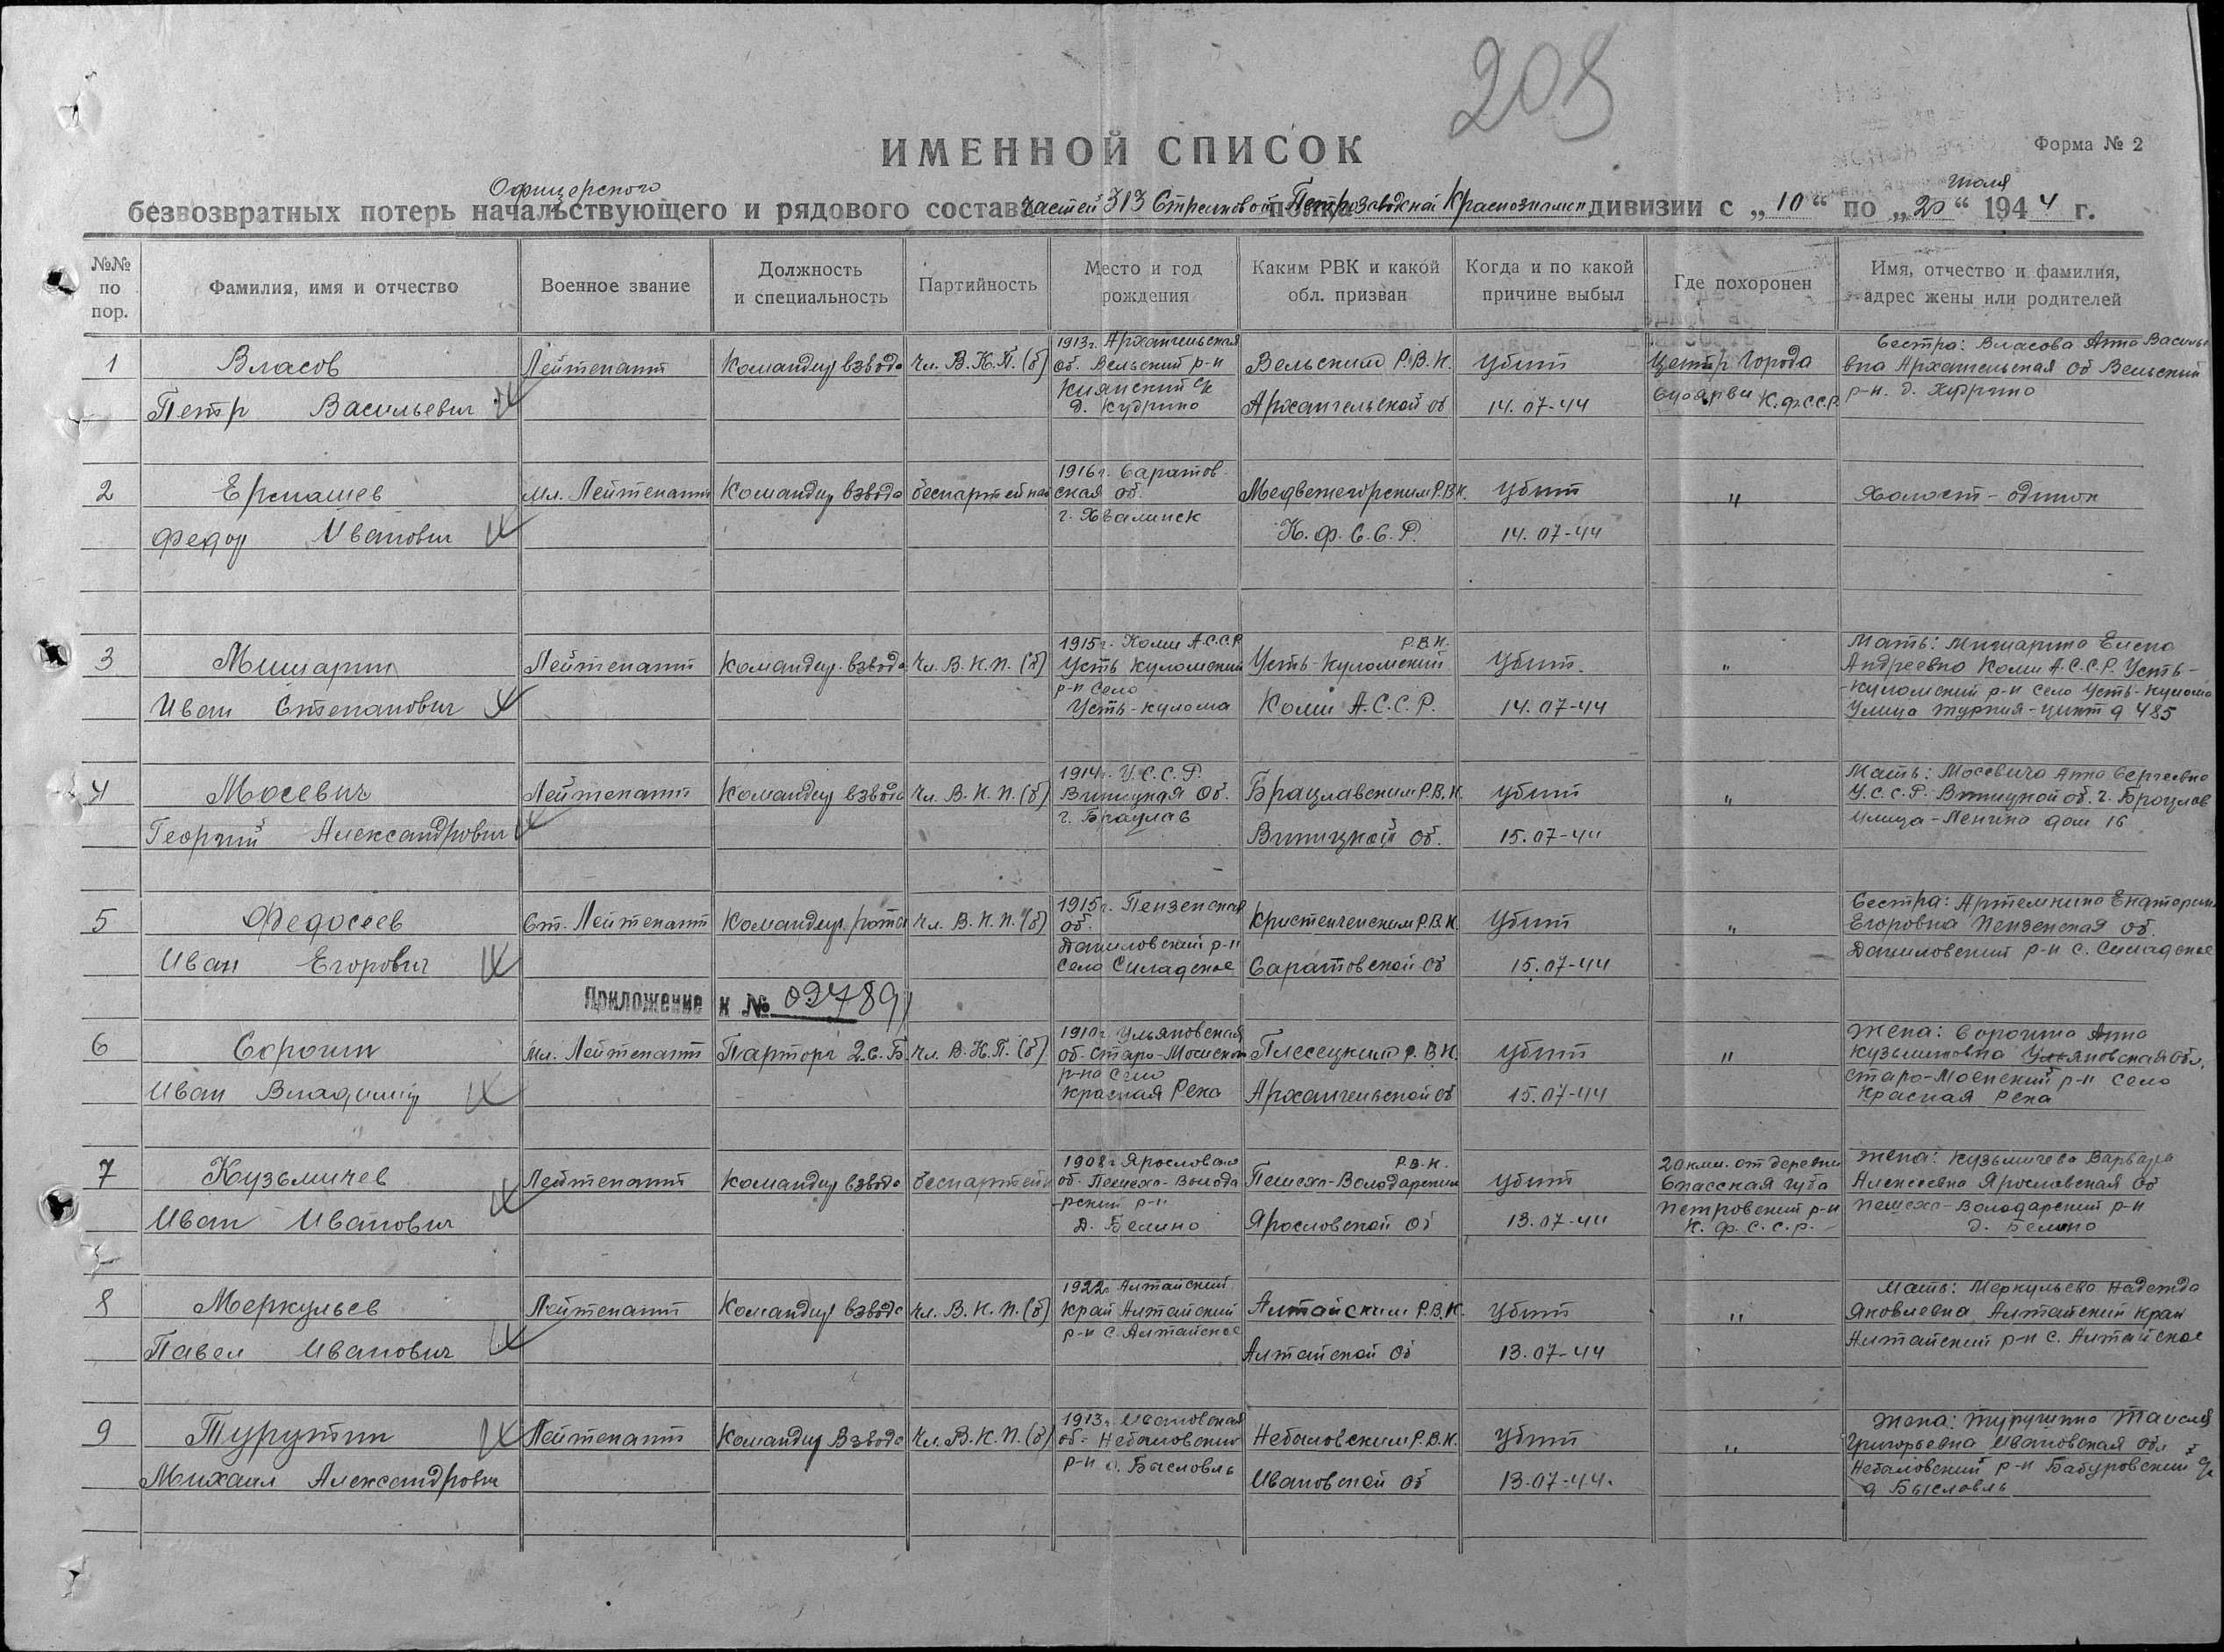 208
ИМЕННОЙ СПИСОК
Форма № 2
Офицерского
июля
безвозвратных потерь начальствующего и рядового состава частей 313 Стрелковой Петрозаводской Краснознамен дивизии с „10“ по „20“ 1944 г.
№№ по пор.
Фамилия, имя и отчество
Военное звание
Должность и специальность
Партийность
Место и год рождения
Каким РВК и какой обл. призван
Когда и по какой причине выбыл
Где похоронен
Имя, отчество и фамилия, адрес жены или родителей
1
Власов
Петр Васильевич
Лейтенант
Командир взвода
Чл. В.К.П. (б)
1913 г. Архангельская
об. Вельский р-н
Киянский с/с
д. Кудрино
Вельским Р.В.К.
Архангельской об
Убит
14.07-44
Центр Города
Суоярви К.Ф.С.С.Р.
Сестра: Власова Анна Василь
вна Архангельская об Вельский
р-н. д. Кудрино
2
Ермашев
Федор Иванович
Мл. Лейтенант
Командир взвода
беспартейный
1916 г. Саратов
ская об.
г. Хвалинск
Медвежегорским Р.В.К.
К.Ф.С.С.Р.
Убит
14.07-44
"
Холост - одинок
3
Мишарин
Иван Степанович
Лейтенант
Командир взвода
Чл. В.К.П. (б)
1915 г. Коми А.С.С.Р
Усть Куломский
р-н село
Усть-кулома
Р.В.К.
Усть-Куломский
Коми А.С.С.Р.
Убит.
14.07-44
"
Мать: Мишарина Елена
Андреевна Коми А.С.С.Р. Усть-
-Куломский р-н село Усть-кулома
Улица д 485
4
Мосевич
Георгий Александрович
Лейтенант
Командир взвода
Чл. В.К.П. (б)
1914 г. У.С.С.Р.
Виницкая Об.
г. Брацлав
Брацлавским Р.В.К.
Виницкой об.
Убит
15.07-44
"
Мать: Мосевича Анна Сергеевна
У.С.С.Р. Виницкой об. г. Брацлав
улица - Ленина дом 16
5
Федосеев
Иван Егорович
Ст. Лейтенант
Командир роты
Чл. В.К.П. (б)
1915 г. Пензенская
об.
Даниловский р-н
село
Р.В.К.
Саратовской об
Убит
15.07-44
"
Сестра: Артемкина Екатерина
Егоровна Пензенская об.
Даниловский р-н с.
Приложение к № 09789
6
Сорочин
Иван Владимир
Мл. Лейтенант
Парторг 2.С.Б.
Чл. В.К.П. (б)
1910 г. Ульяновская
об. Старо-Моенском
р-на село
красная Река
Плесецким Р.В.К.
Архангельской об
Убит
15.07-44
"
Жена: Сорочина Анна
Кузьминовна Ульяновская обл.
Старо-Моенский р-н село
Красная река
7
Кузьмичев
Иван Иванович
Лейтенант
Командир взвода
беспартейн
1908 г Ярославская
об. Пошехо-Волода
рский р-н
Д. Белино
Р.В.К.
Пошехо-Володарским
Ярославской об
Убит
13.07-44
20 клм. от деревни
Спасская губа
Петровский р-н
К.Ф.С.С.Р.
Жена: Кузьмичева Варвара
Алексеевна Ярославская об
пошехо-Володарский р-н
д. Белино
8
Меркульев
Павел Иванович
Лейтенант
Командир взвода
Чл. В.К.П. (б)
1922 г Алтайский
край Алтайский
р-н с. Алтайское
Алтайским Р.В.К.
Алтайской об
Убит
13.07-44
"
Мать: Меркульева Надежда
Яковлевна Алтайский край
Алтайский р-н с. Алтайское
9
Турутин
Михаил Александрович
Лейтенант
Командир Взвода
Чл. В.К.П. (б)
1913 г. Ивановская
об - Небыловский
р-н д. Бысловль
Небыловским Р.В.К.
Ивановской об
Убит
13.07-44.
"
Жена: Турутина Таисия
Григорьевна Ивановская обл
Небыловский р-н Бабуровский с/с
д Бысловль